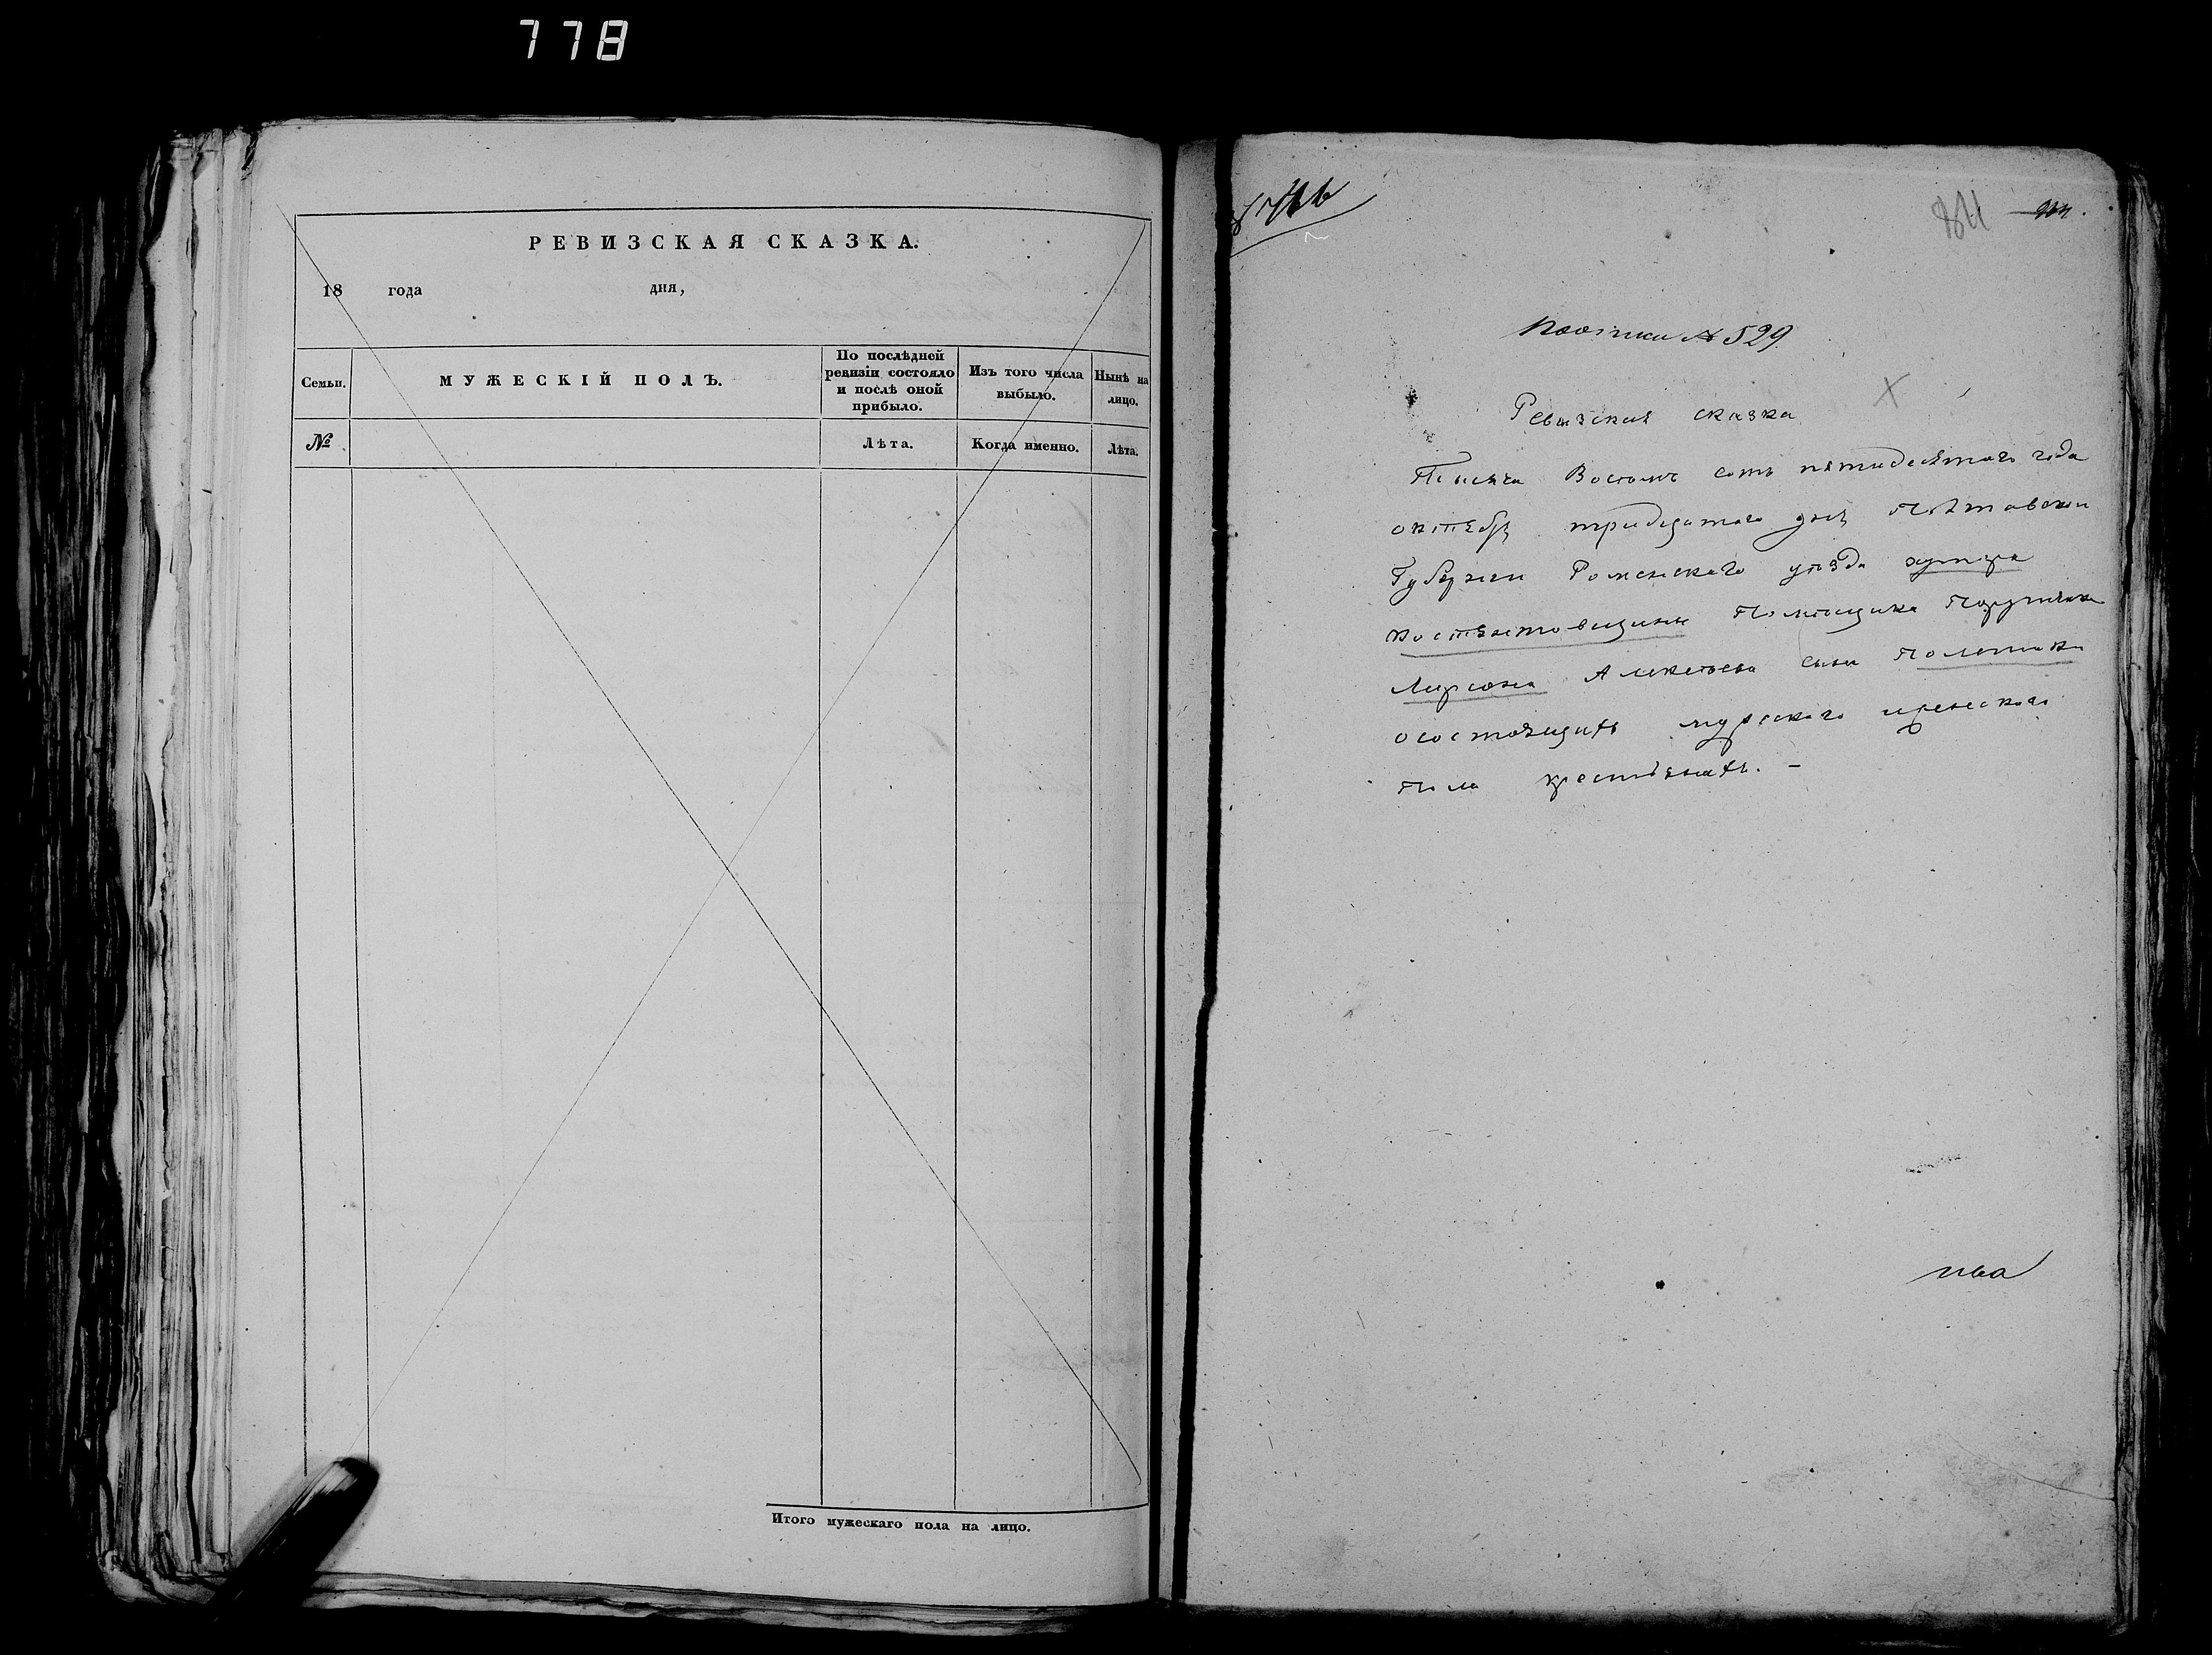 778
РЕВИЗСКАЯ СКАЗКА.
18 года дня,
Семьи. МУЖЕСКІЙ ПОЛЪ. По послѣдней ревизіи состояло и послѣ оной прибыло. Изъ того числа выбыло. Нынѣ на лицо.
№ Лѣта. Когда именно. Лѣта.
Итого мужескаго пола на лицо.
№ 529
Ревизская сказка
Тысяча Восемъ сотъ пятидесятого года
октября тридцатого дня Полтавской
Губернии Роменского уезда хутора
Помещика Поручика
Алексеева сына Полетики
осостоящихъ мужского иженского
пола крестьянахъ. –